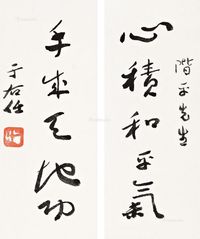 心積和平氣
階平先生
手成天地功
于右任